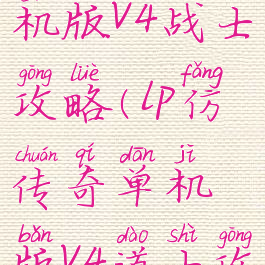 机版V4战士
gōng lüè fǎng
攻略(LP仿
chuán qí dān jī
传奇单机
bǎn dào shì gōng
版V4道士攻